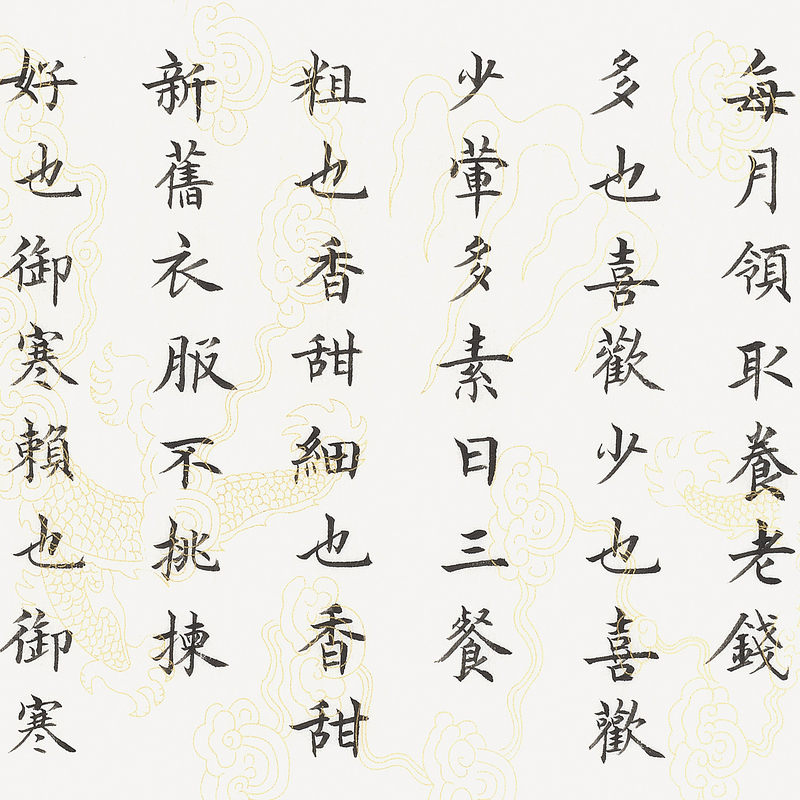 每月領取養老錢
多也喜歡少也喜歡
少葷多素日三餐
粗也香甜細也香甜
新舊衣服不挑揀
好也御寒賴也御寒